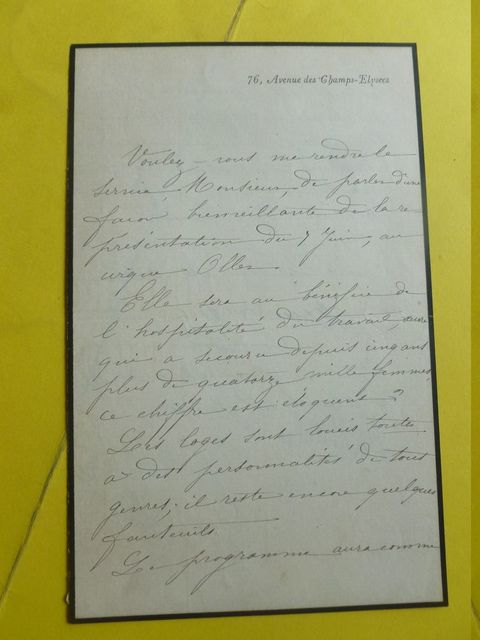 76, Avenue des Champs-Elysées
Voulez-vous me rendre le
service Monsieur, de parler d'une
façon bienveillante de la re
présentation du 7 Juin, au
cirque
Elle sera au bénéfice de
l'hospitalité du travail, œuvre
qui a secouru depuis cinq ans
plus de quatorze mille femmes,
ce chiffre est éloquent ?
Les loges sont louées toutes
à des personnalités de tous
genres; il reste encore quelques
fauteuils
Le programme aura comme